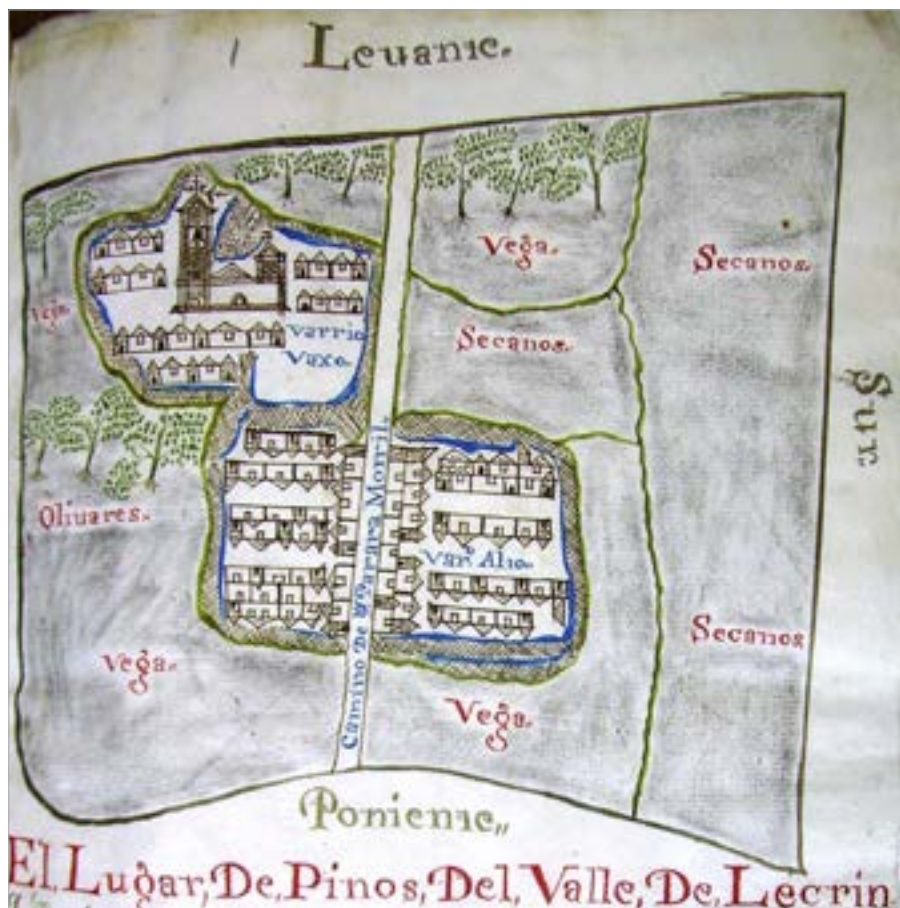 Leuante.
Vega.
Secanos.
Vega.
Varrio
Vaxo.
Secanos.
Sur.
Oliuares.
Camino De Gra. para Motril.
Var.º Alto.
Vega.
Secanos
Vega.
Poniente,,
El, Lugar, De, Pinos, Del, Valle, De, Lecrin